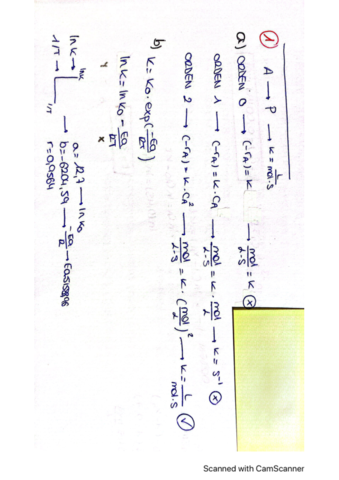 ① A → P → k = L/mol·s
a) ORDEN 0 → (-rA) = k → mol/L·s = k ⊗
ORDEN 1 → (-rA) = k·CA → mol/L·s = k · mol/L → k = s⁻¹ ⊗
ORDEN 2 → (-rA) = k·CA² → mol/L·s = k · (mol/L)² → k = L/mol·s ✓
b) k = k₀ · exp(-Ea/RT)
ln k = ln k₀ - Ea/RT
y x
ln k →
1/T →
ln k
1/T
→ a = 12,7 → ln k₀
b = -6204,59 → -Ea/R →
Scanned with CamScanner